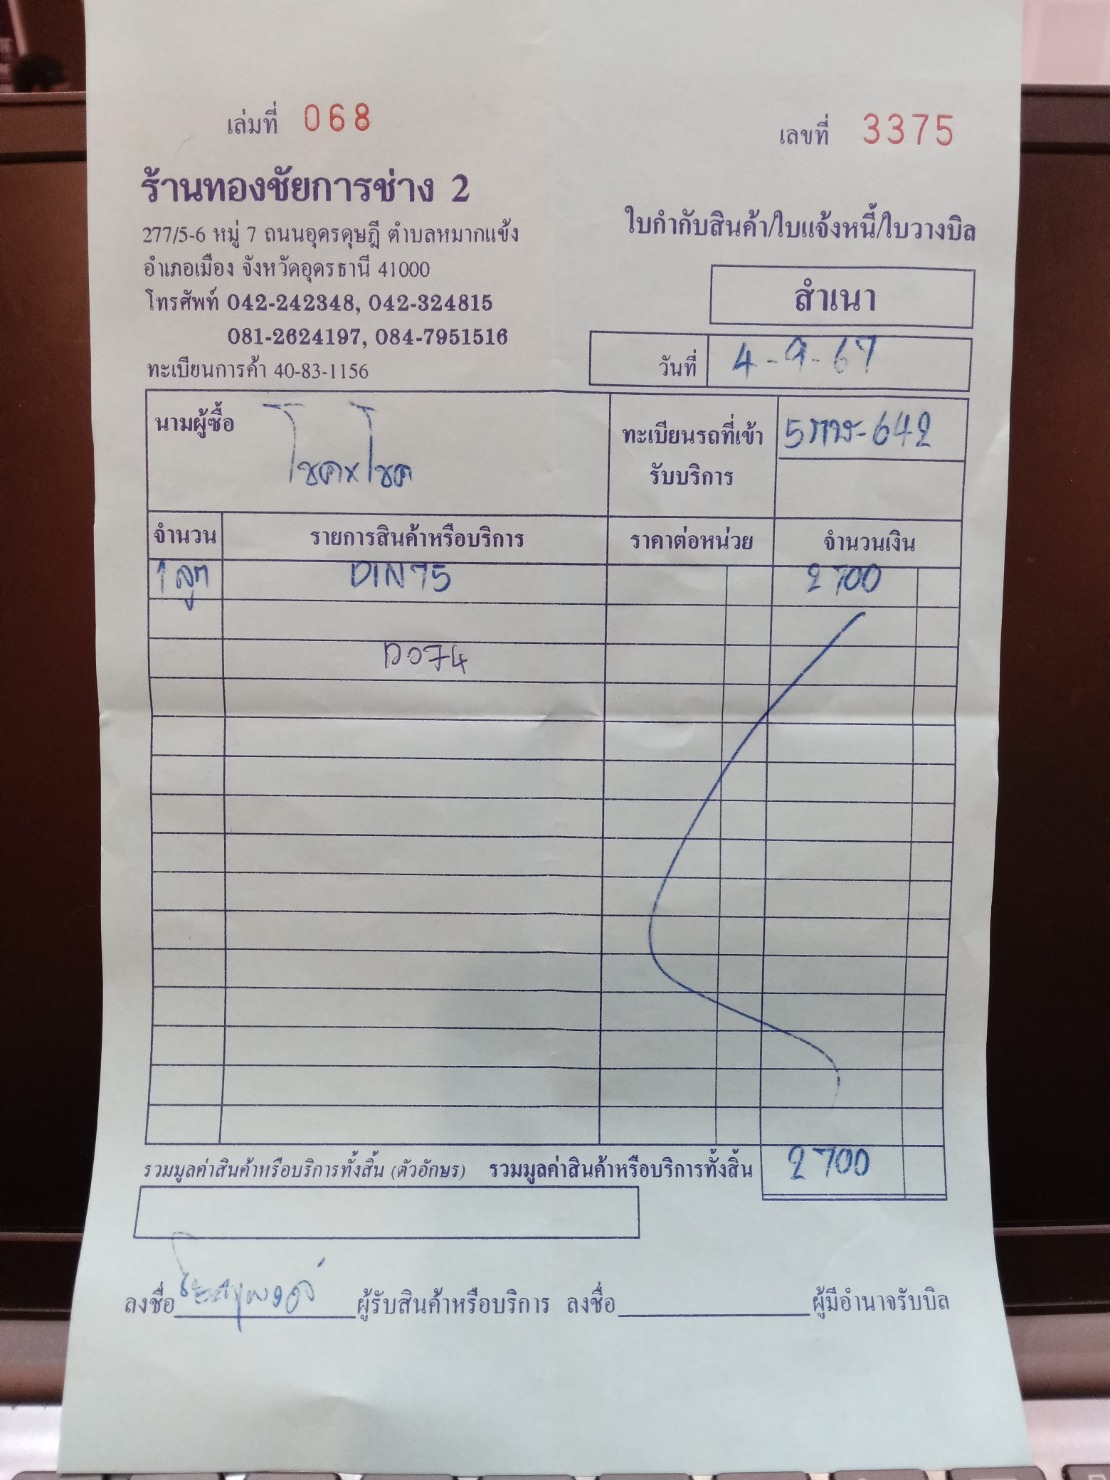 เล่มที่ 068
เลขที่ 3375
ร้านทองชัยการช่าง 2
277/5-6 หมู่ 7 ถนนอุดรดุษฎี ตำบลหมากแข้ง
อำเภอเมือง จังหวัดอุดรธานี 41000
โทรศัพท์ 042-242348, 042-324815
081-2624197, 084-7951516
ทะเบียนการค้า 40-83-1156
ใบกำกับสินค้า/ใบแจ้งหนี้/ใบวางบิล
สำเนา
วันที่ 4-9-67
นามผู้ซื้อ โชคxโชค
ทะเบียนรถที่เข้า
รับบริการ
642
จำนวน รายการสินค้าหรือบริการ ราคาต่อหน่วย จำนวนเงิน
1 ลูก DIN75 2700
D074
รวมมูลค่าสินค้าหรือบริการทั้งสิ้น (ตัวอักษร) รวมมูลค่าสินค้าหรือบริการทั้งสิ้น 2700
ลงชื่อ ผู้รับสินค้าหรือบริการ ลงชื่อ ผู้มีอำนาจรับบิล